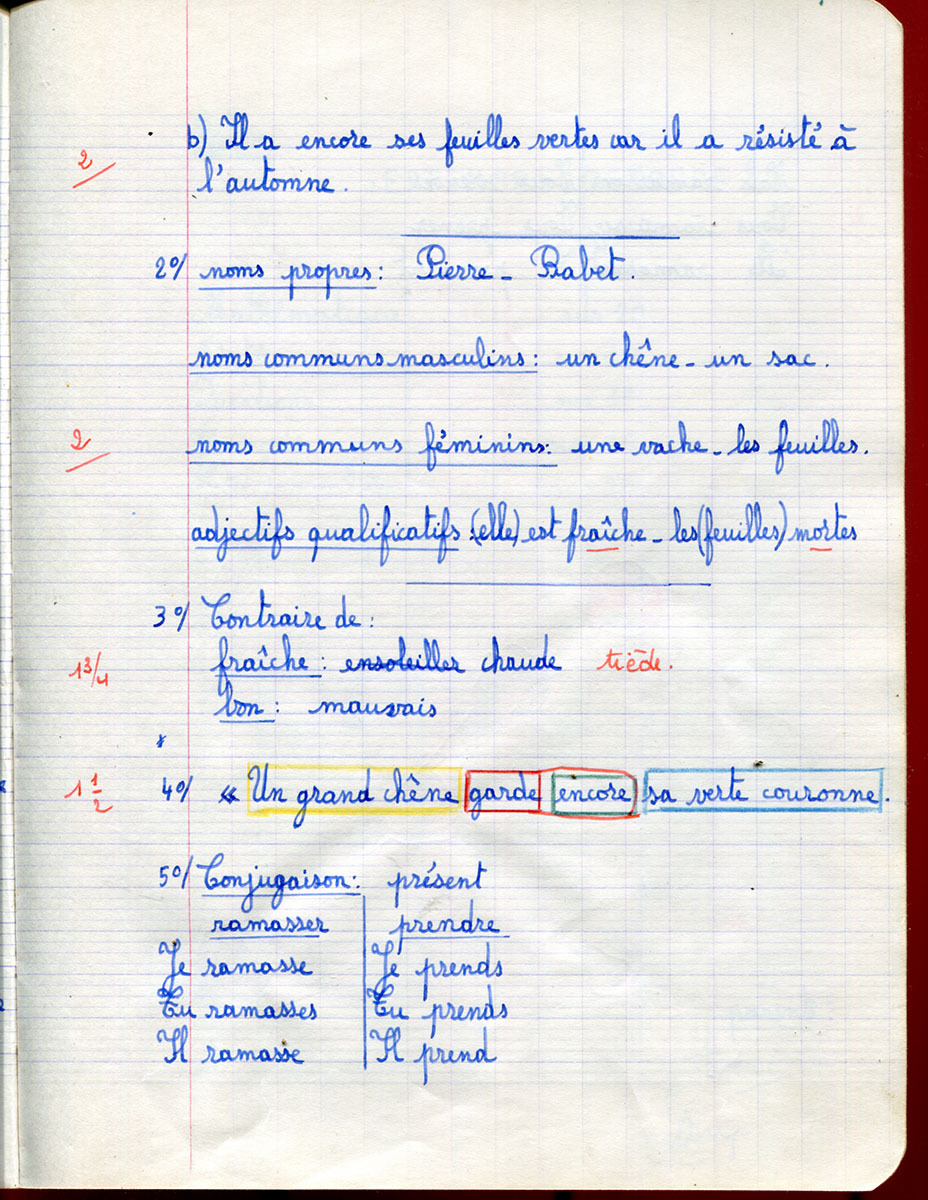 b) Il a encore ses feuilles vertes car il a résisté à
2
l'automne.
2º/ noms propres : Pierre - Babet.
noms communs masculins : un chêne - un sac.
2 noms communs féminins : une vache - les feuilles.
adjectifs qualificatifs : (elle) est fraîche - les (feuilles) mortes
3º/ Contraire de :
1 3/4 fraîche : ensoleiller chaude tiède.
bon : mauvais
1 1/2 4º/ « Un grand chêne garde encore sa verte couronne.
5º/ Conjugaison : présent
ramasser prendre
Je ramasse Je prends
Tu ramasses Tu prends
Il ramasse Il prend